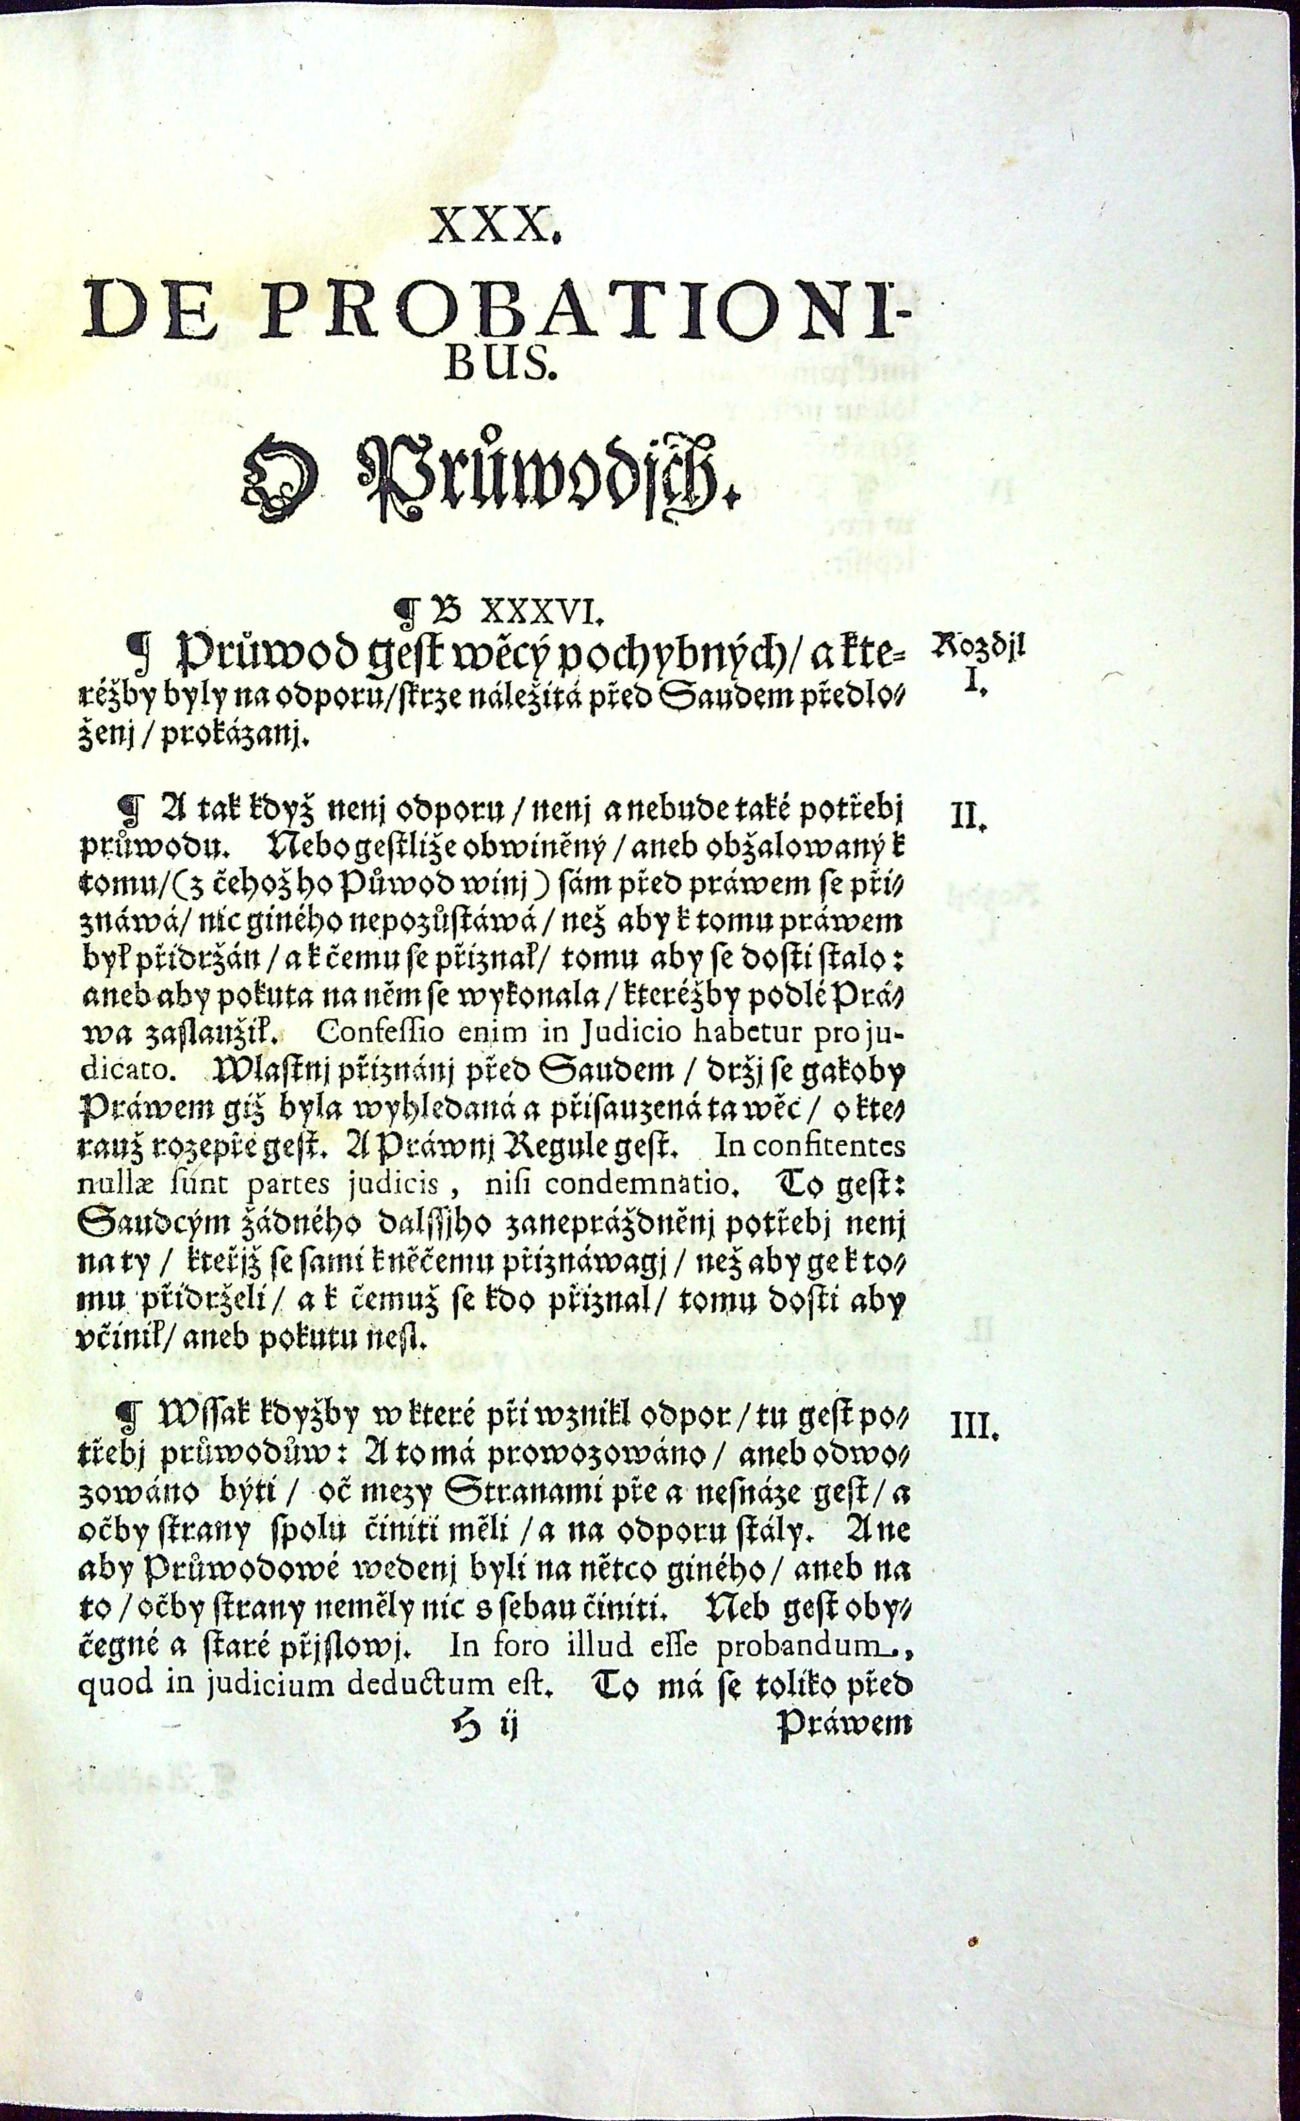 XXX.
DE PROBATIONI-
BUS.
O Průwodjch.
¶ B XXXVI.
¶ Průwod gest wěcý pochybných / a kte-
Rozdjl
réžby byly na odporu / skrze náležitá před Saudem předlo-
I.
ženj / prokázanj.
¶ A tak když nenj odporu / nenj a nebude také potřebj
II.
průwodu. Nebo gestliže obwiněný / aneb obžalowaný k
tomu / (z čehož ho Půwod winj) sám před práwem se při-
znáwá / nic giného nepozůstáwá / než aby k tomu práwem
był přidržán / a k čemu se přiznał / tomu aby se dosti stalo:
aneb aby pokuta na něm se wykonala / kteréžby podlé Prá-
wa zaslaužił. Confessio enim in Judicio habetur pro ju-
dicato. Wlastnj přiznánj před Saudem / držj se gakoby
Práwem giž byla wyhledaná a přisauzená ta wěc / o kte-
rauž rozepře gest. A Práwnj Regule gest. In confitentes
nullæ sunt partes judicis, nisi condemnatio. To gest:
Saudcým žádného dalssjho zaneprázdněnj potřebj nenj
na ty / kteřjž se sami k něčemu přiznáwagj / než aby ge k to-
mu přidrželi / a k čemuž se kdo přiznal / tomu dosti aby
včinił / aneb pokutu nesl.
¶ Wssak kdyžby w které při wznikl odpor / tu gest po-
III.
třebj průwodůw: A to má prowozowáno / aneb odwo-
zowáno býti / oč mezy Stranami pře a nesnáze gest / a
očby strany spolu činiti měli / a na odporu stály. A ne
aby Průwodowé wedenj byli na nětco giného / aneb na
to / očby strany neměly nic s sebau činiti. Neb gest oby-
čegné a staré přjslowj. In foro illud esse probandum,
quod in judicium deductum est. To má se toliko před
H ij
Práwem